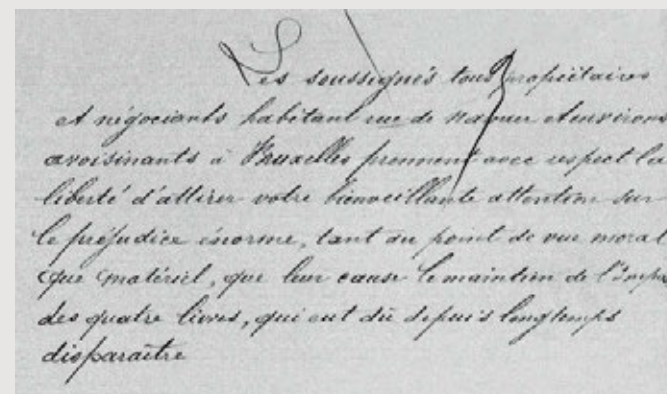 Les soussignés tous propiétaires
et négociants habitant rue de Namur et environs
avoisinants à Bruxelles prennent avec respect la
liberté d'attirer votre bienveillante attention sur
le préjudice énorme, tant au point de vue moral
que matériel, que leur cause le maintien de l'impa
des quatre livres, qui eut dû depuis longtemps
disparaître